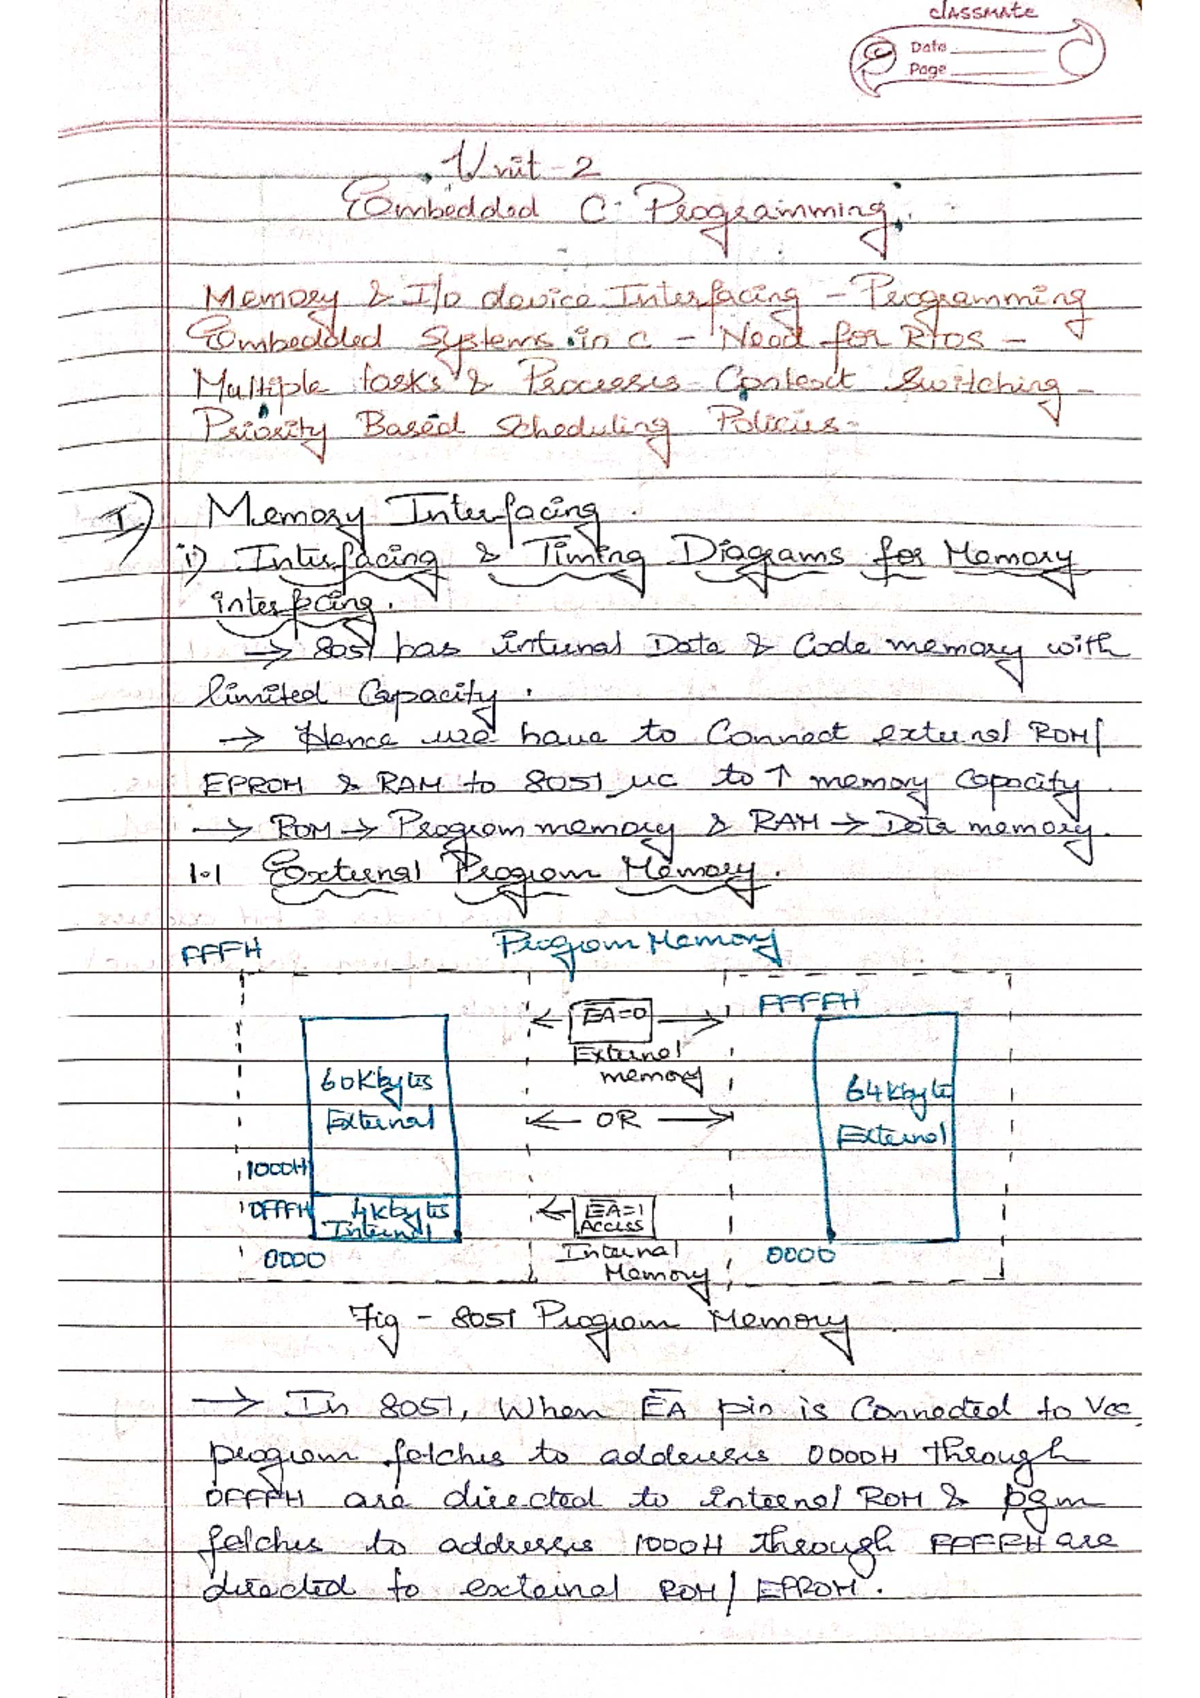 classmate
Date
Page
Unit-2
Embedded C Programming.
Memory & I/o device Interfacing - Programming
Embedded Systems in C - Need for RTOS -
Multiple tasks & Processes - Context Switching -
Priority Based Scheduling Policies -
I) Memory Interfacing.
i) Interfacing & Timing Diagrams for Memory
interfacing.
→ 8051 has internal Data & Code memory with
limited Capacity.
→ Hence we have to Connect external ROM/
EPROM & RAM to 8051 μc to ↑ memory Capacity.
→ ROM → Program memory & RAM → Data memory.
1.1 External Program Memory.
Program Memory
FFFH
EA=0
FFFFH
External
memory
60Kbytes
External
64Kbytes
External
← OR →
1000H
0FFFH
4Kbytes
Internal
EA=1
Access
Internal
Memory
0000
0000
Fig - 8051 Program Memory.
→ In 8051, When E̅A̅ pin is Connected to Vcc,
program fetches to addresses 0000H through
0FFFH are directed to internal ROM & pgm
fetches to addresses 1000H through FFFFH are
directed to external ROM/EPROM.